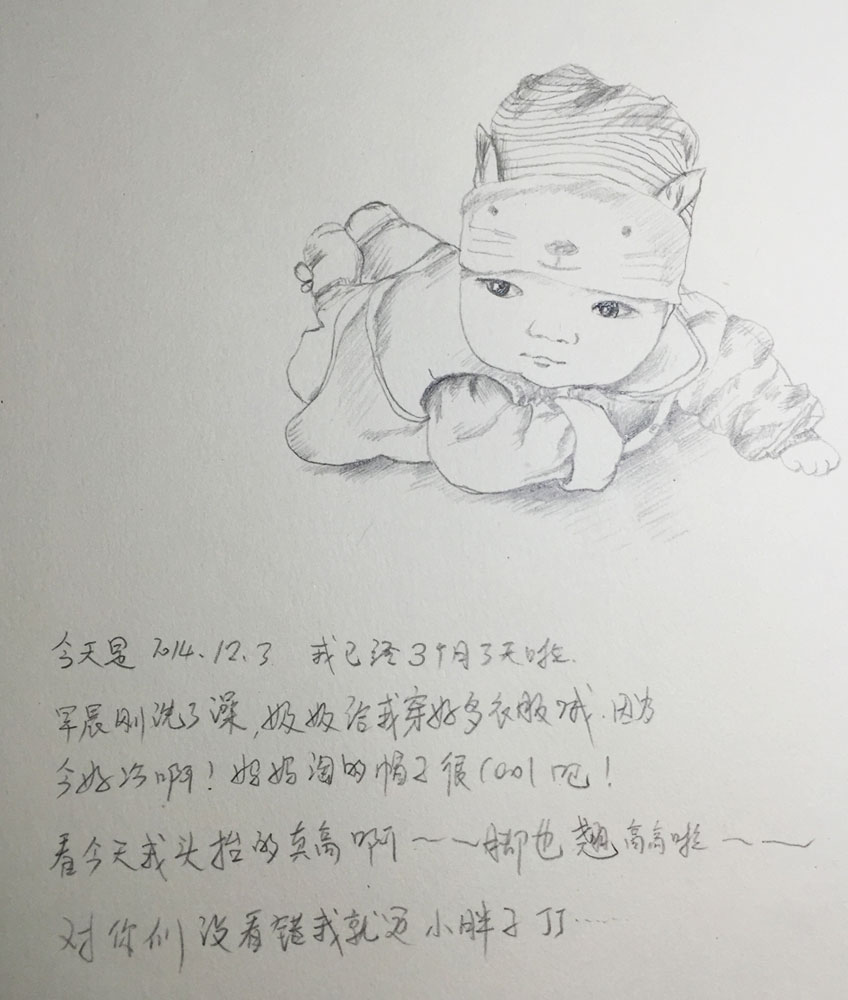 今天是 2014.12.3 我已经3个月3天啦.
早晨刚洗了澡,奶奶给我穿好多衣服哦.因为
今好冷啊!妈妈淘的帽子很cool吧!
看今天我头抬的真高啊~~脚也翘高高啦~~
对你们没看错我就是小胖子JJ……